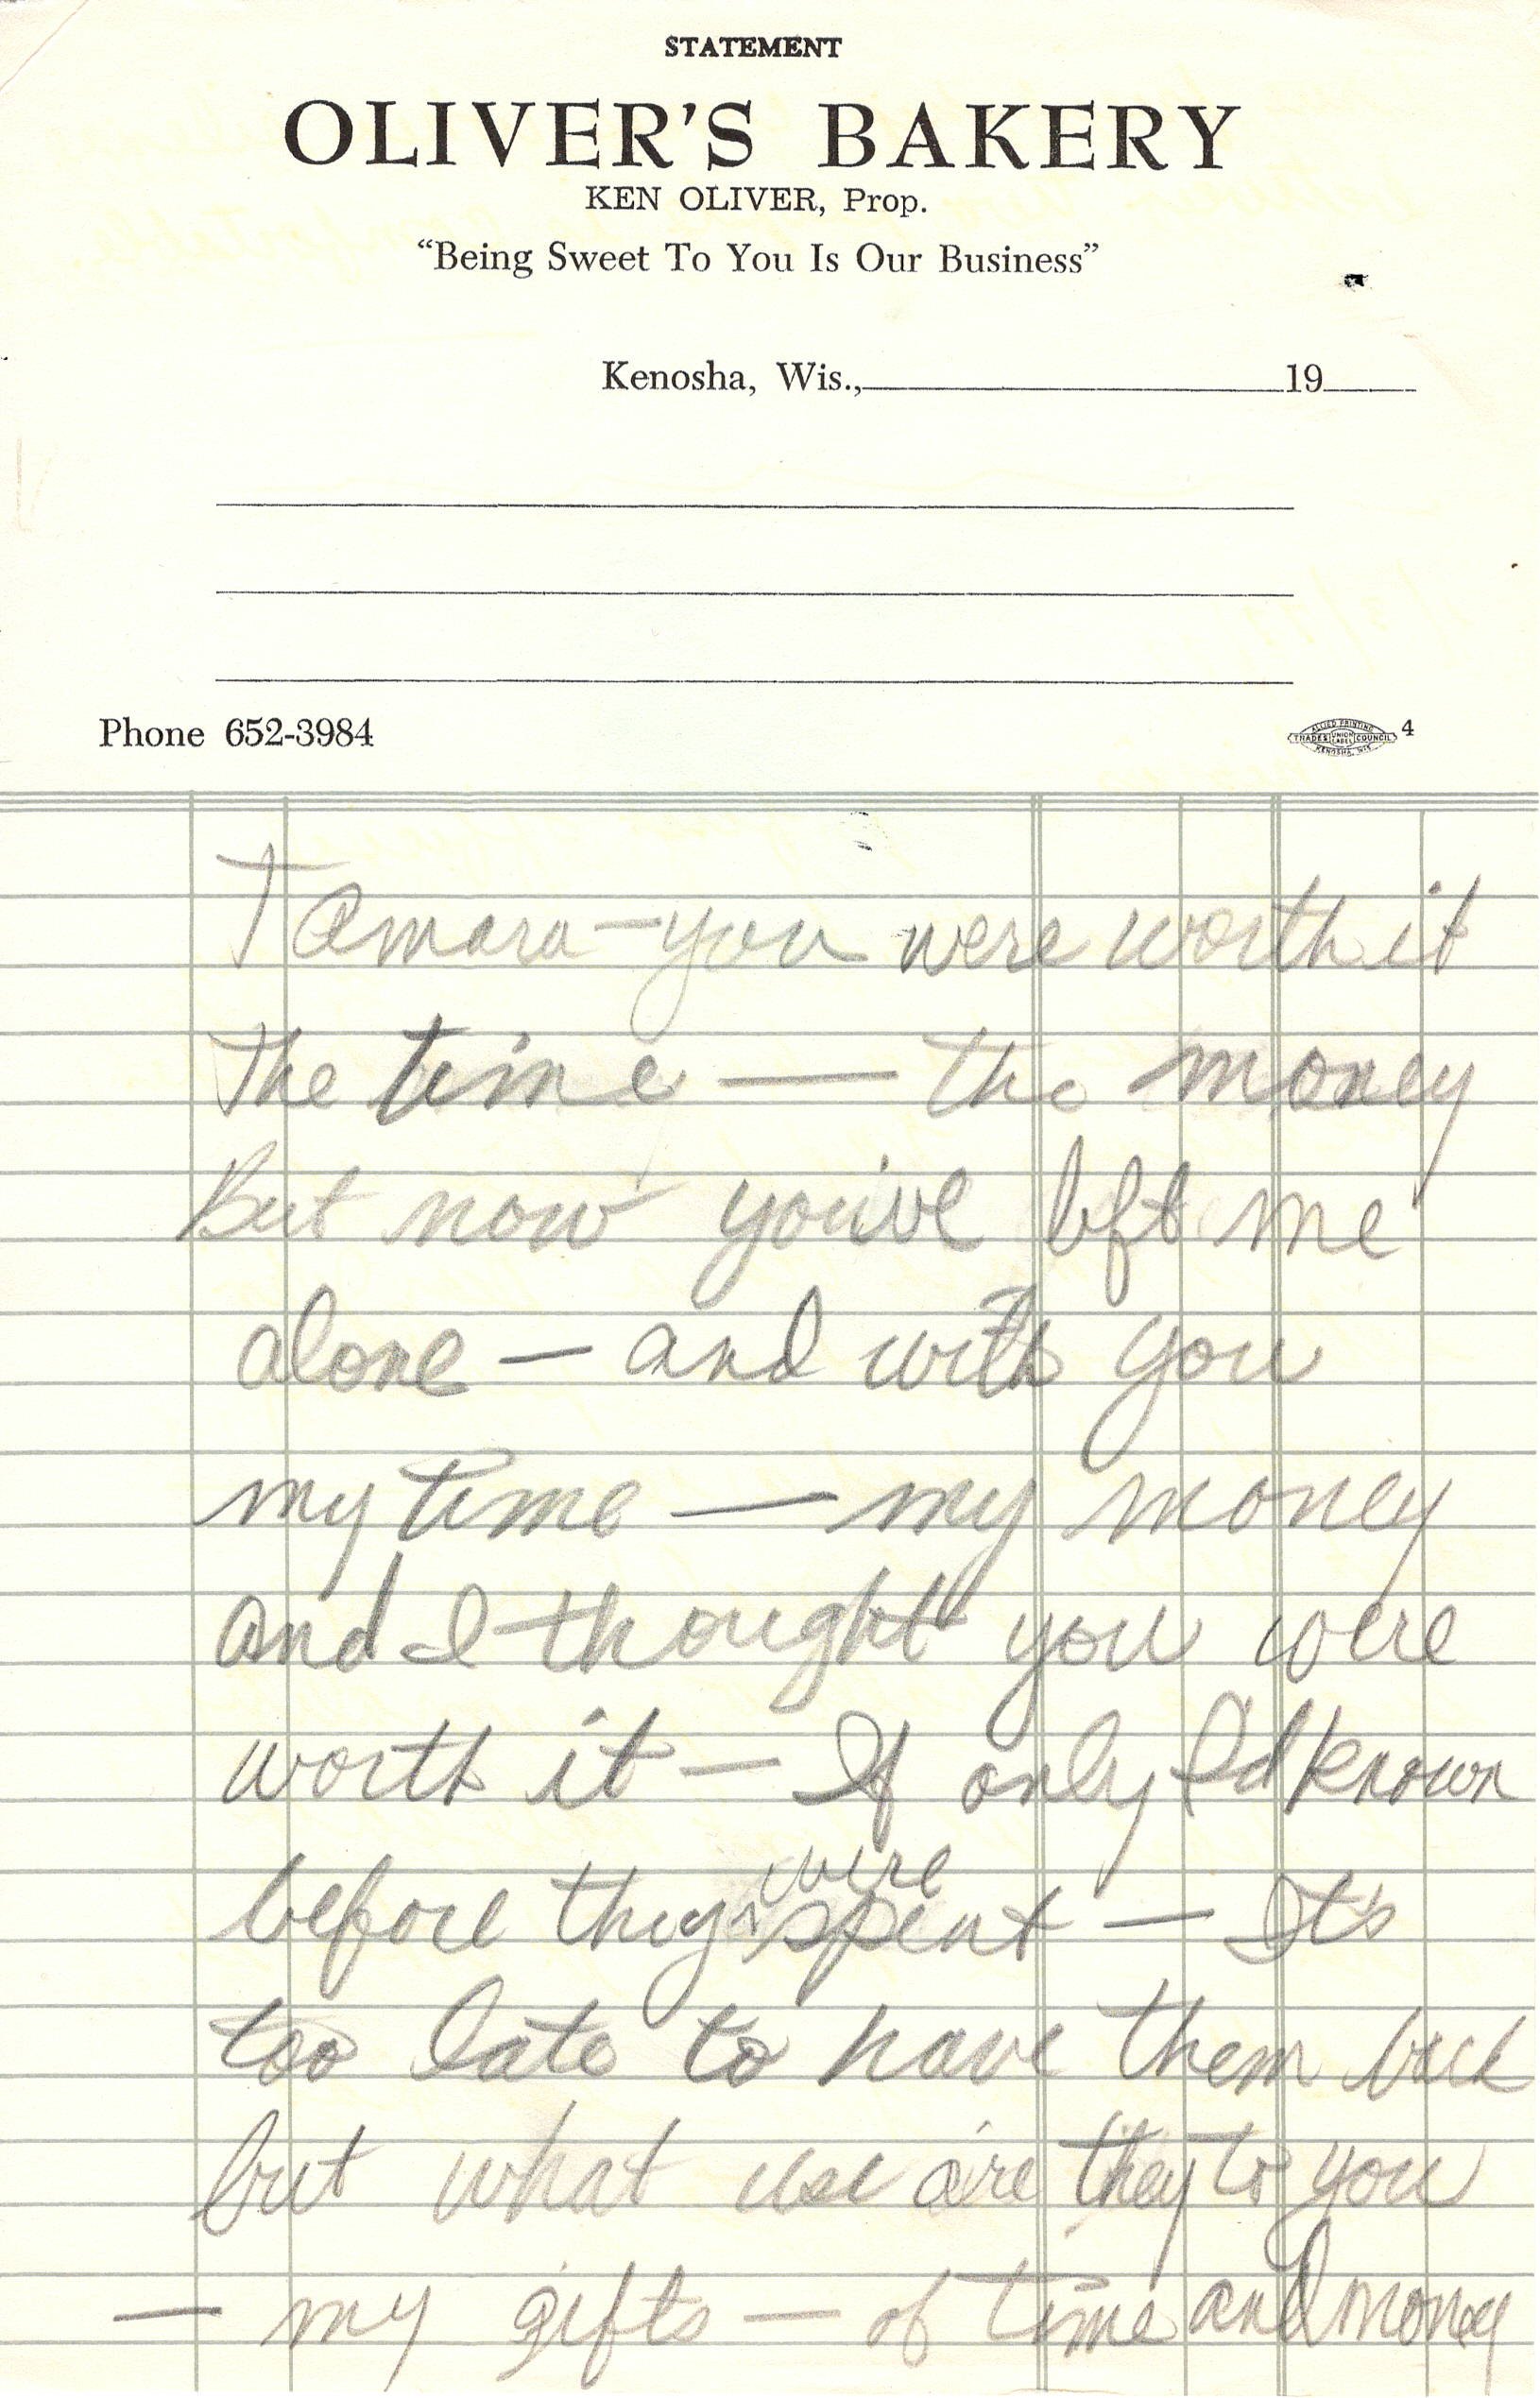 STATEMENT
OLIVER'S BAKERY
KEN OLIVER, Prop.
“Being Sweet To You Is Our Business”
Kenosha, Wis., 19
Phone 652-3984
ALLIED PRINTING
TRADES UNION LABEL COUNCIL
KENOSHA, WIS.
4
Tamara — you were worth it
The time — the money
But now you've left me
alone — and with you
my time — my money
and I thought you were
worth it — If only I'd known
before they were spent — It's
too late to have them back
but what use are they to you
— my gifts — of time and money